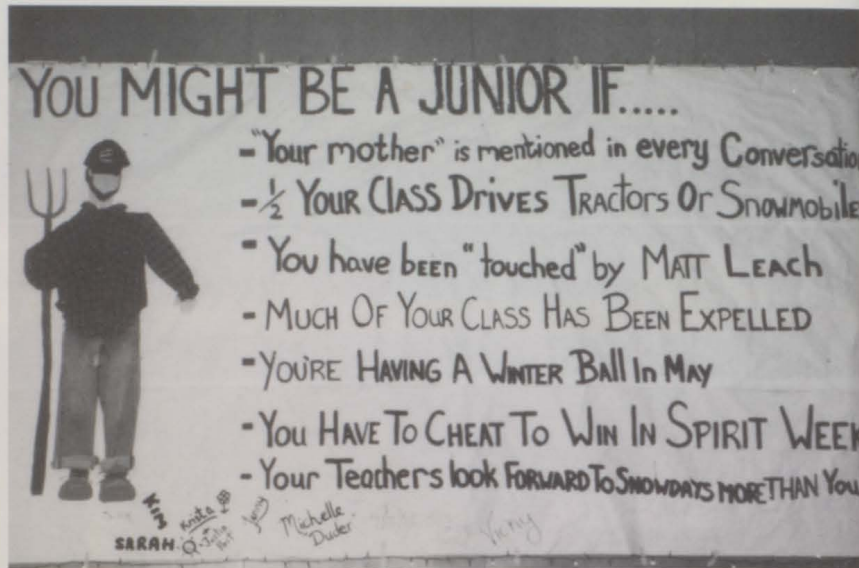 YOU MIGHT BE A JUNIOR IF.....
- "Your mother" is mentioned in every Conversatio
- ½ YOUR CLASS DRIVES TRACTORS Or SNOWMOBILE
- You have been "touched" by MATT LEACH
- MUCH OF YOUR CLASS HAS BEEN EXPELLED
- YOU'RE HAVING A WINTER Ball In MAY
- YOU HAVE TO CHEAT TO WIN IN SPIRIT WEEK
- Your Teachers look FORWARD TO SNOWDAYS MORE THAN You
Krista
Michelle
Duder
SARAH